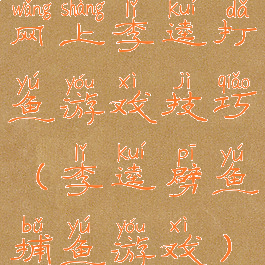 wǎng shàng lǐ kuí dǎ
网上李逵打
yú yóu xì jì qiǎo
鱼游戏技巧
lǐ kuí pī yú
（李逵劈鱼
bǔ yú yóu xì
捕鱼游戏）